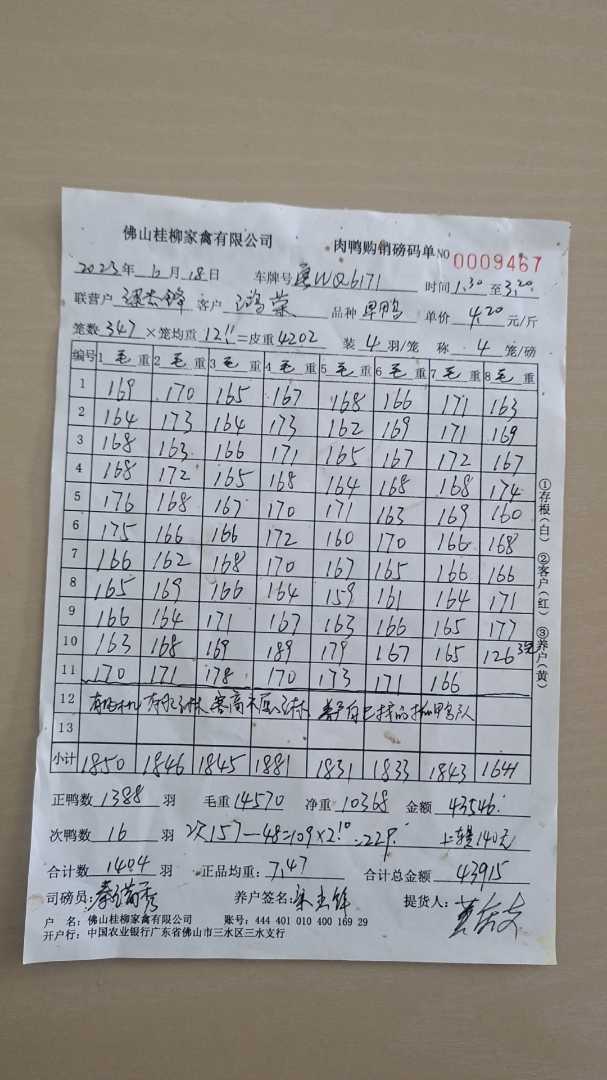 佛山桂柳家禽有限公司 肉鸭购销磅码单 NO 0009467
2023年 6月 18日 车牌号 WQ6171 时间 1:30 至 3:20
联营户 客户 鸿荣 品种 单价 4.20 元/斤
笼数 347 ×笼均重 12.11 =皮重 4202 装 4 羽/笼 称 4 笼/磅
编号 1 毛 重 2 毛 重 3 毛 重 4 毛 重 5 毛 重 6 毛 重 7 毛 重 8 毛 重
1 169 170 165 167 168 166 171 163
2 164 173 164 173 162 169 171 169
3 168 163 166 171 165 167 172 167
4 168 172 165 168 164 168 168 174
5 176 168 167 170 171 163 169 160
6 175 166 166 172 160 170 166 168
7 166 162 168 170 167 165 166 166
8 165 169 166 164 159 161 164 171
9 166 164 171 167 163 166 165 177
10 163 168 169 189 179 167 165 126 3笼
11 170 171 178 170 173 171 166
12
13
小计 1850 1846 1845 1881 1831 1833 1843 1641
正鸭数 1388 羽 毛重 14570 净重 10368 金额 43546
次鸭数 16 羽 次157-48=109×2.10=229 上车费140元
合计数 1404 羽 正品均重: 7.47 合计总金额 43915
司磅员: 养户签名: 提货人:
户 名: 佛山桂柳家禽有限公司 账号: 444 401 010 400 169 29
开户行: 中国农业银行广东省佛山市三水区三水支行
①存根(白) ②客户(红) ③养户(黄)